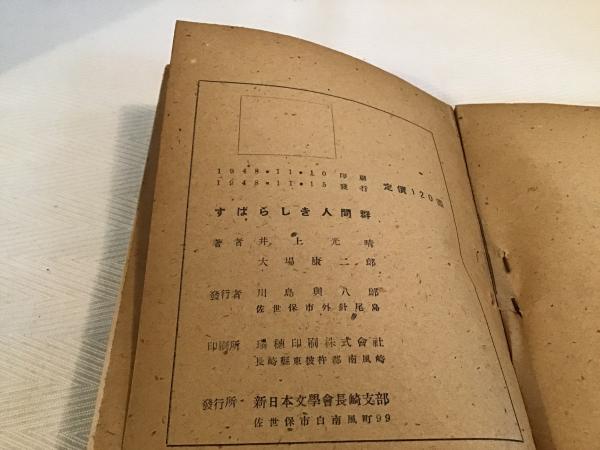 1948・11・10 印刷
1948・11・15 發行 定價120圓
すばらしき人間群
著者 井上光晴
大場康二郎
發行者 川島與八郎
佐世保市外針尾島
印刷所 瑞穗印刷株式會社
長崎縣東彼杵郡南風崎
發行所 新日本文學會長崎支部
佐世保市白南風町99